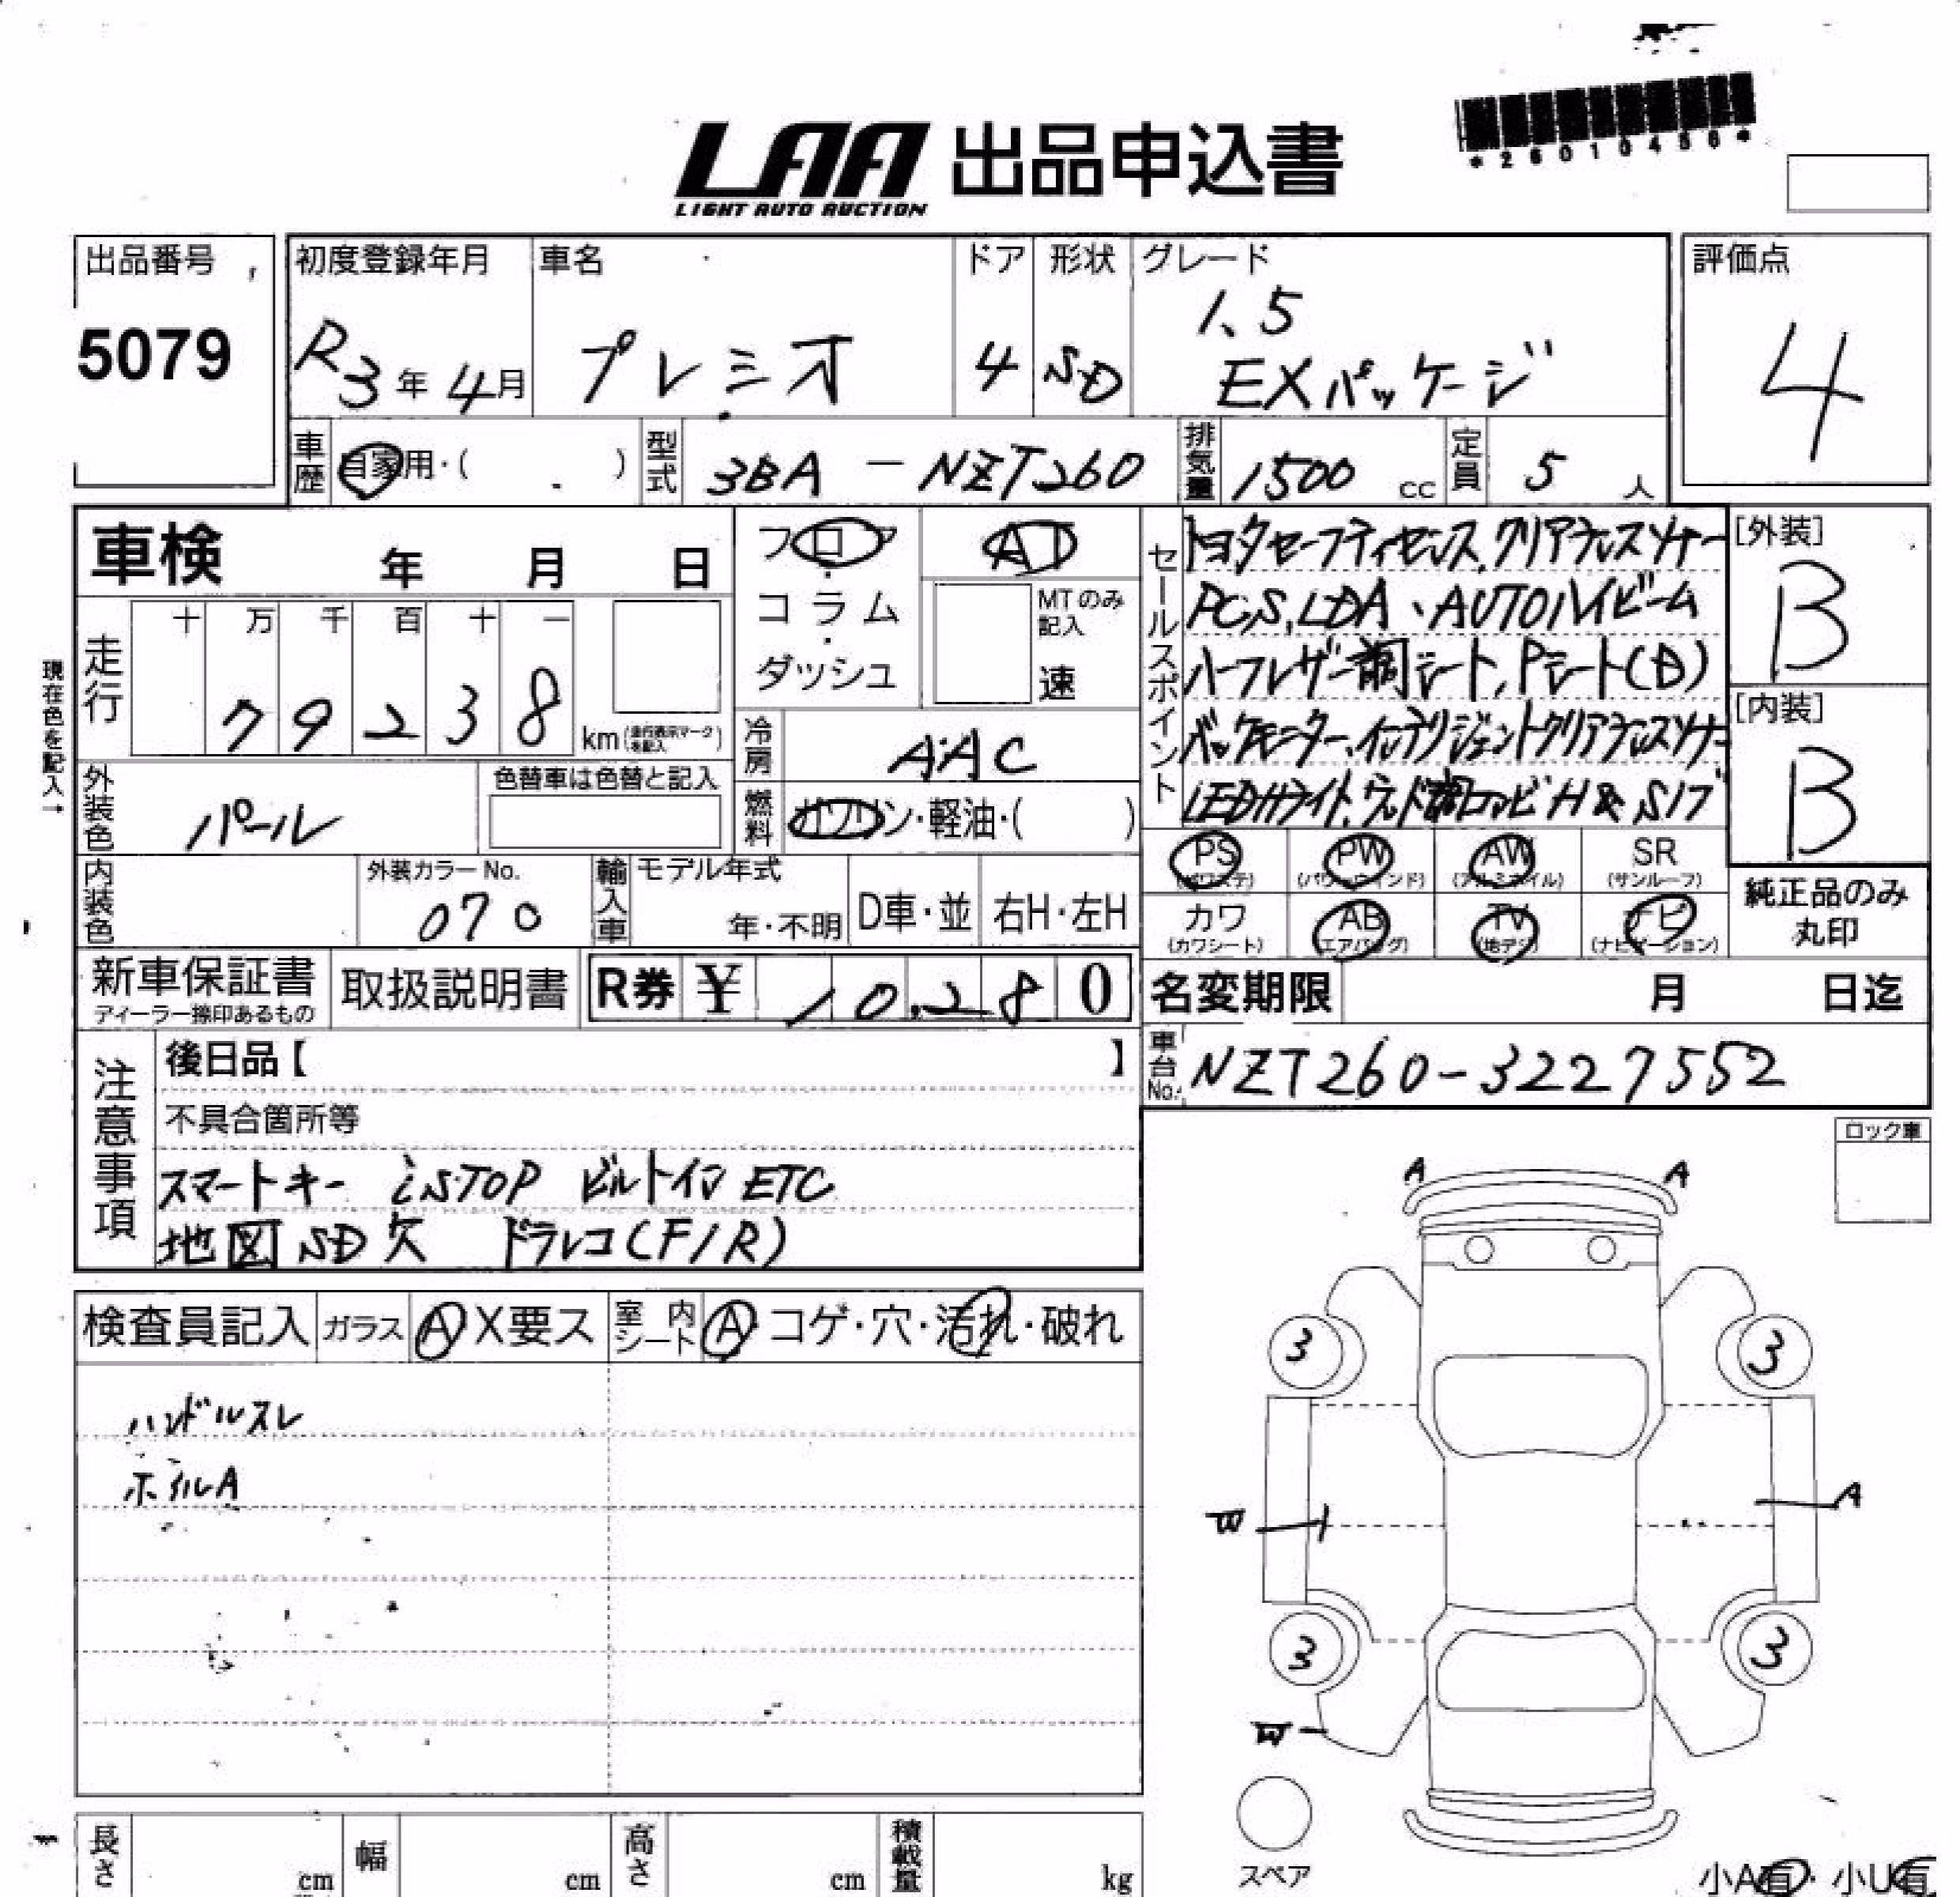 LAA 出品申込書
LIGHT AUTO AUCTION
*26010456*
出品番号
5079
初度登録年月
R3年4月
車名
プレミオ
ドア
4
形状
SD
グレード
1.5
EXパッケージ
評価点
4
車歴 自家用・( )
型式 3BA - NZT260
排気量 1500 cc
定員 5 人
車検 年 月 日
フロア・コラム・ダッシュ
AT
MTのみ記入
速
セールスポイント
トヨタセーフティセンス、クリアランスソナー
PCS、LDA、AUTOハイビーム
ハーフレザー調シート、Pシート(D)
バックモニター、インテリジェントクリアランスソナー
LEDHライト、ウッド調コンビH & S/ブ
[外装]
B
[内装]
B
現在色を記入→
走行
十 万 千 百 十 一
7 9 2 3 8 km(走行表示マークを記入)
冷房 AAC
外装色 パール
色替車は色替と記入
燃料 ガソリン・軽油・( )
PS (パワステ)
PW (パワーウインド)
AW (アルミホイル)
SR (サンルーフ)
カワ (カワシート)
AB (エアバッグ)
TV (地デジ)
ナビ (ナビゲーション)
純正品のみ
丸印
内装色
外装カラーNo.
070
輸入車
モデル年式
年・不明
D車・並
右H・左H
新車保証書
ディーラー捺印あるもの
取扱説明書
R券 ¥ 10,280
名変期限 月 日迄
車台No. NZT260-3227552
注意事項
後日品【 】
不具合箇所等
スマートキー iSTOP ビルトイン ETC
地図SD欠 ドラレコ(F/R)
ロック車
検査員記入
ガラス A X要ス
室内シート A コゲ・穴・汚れ・破れ
ハンドルスレ
ホイルA
A A
3 3
A
W
3 3
W
スペア
長さ cm
幅 cm
高さ cm
積載量 kg
小A有・小U有